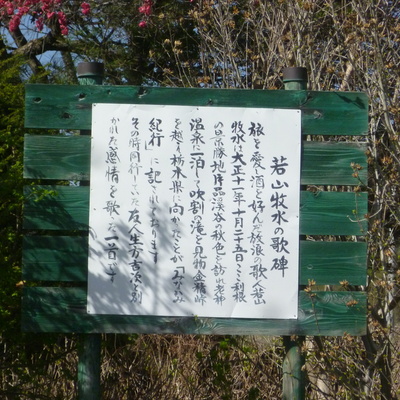 若山牧水の歌碑
旅を愛し酒を好んだ放浪の歌人若山
牧水は大正十一年十月二十五日ここ利根
の景勝地片品渓谷の秋色を訪れ老神
温泉に一泊し吹割の滝を見物金精峠
を越え栃木県に向かったことが
紀行に記されてあります
その時同行していた友人生方吉次と別
かれた感情を歌った一首です